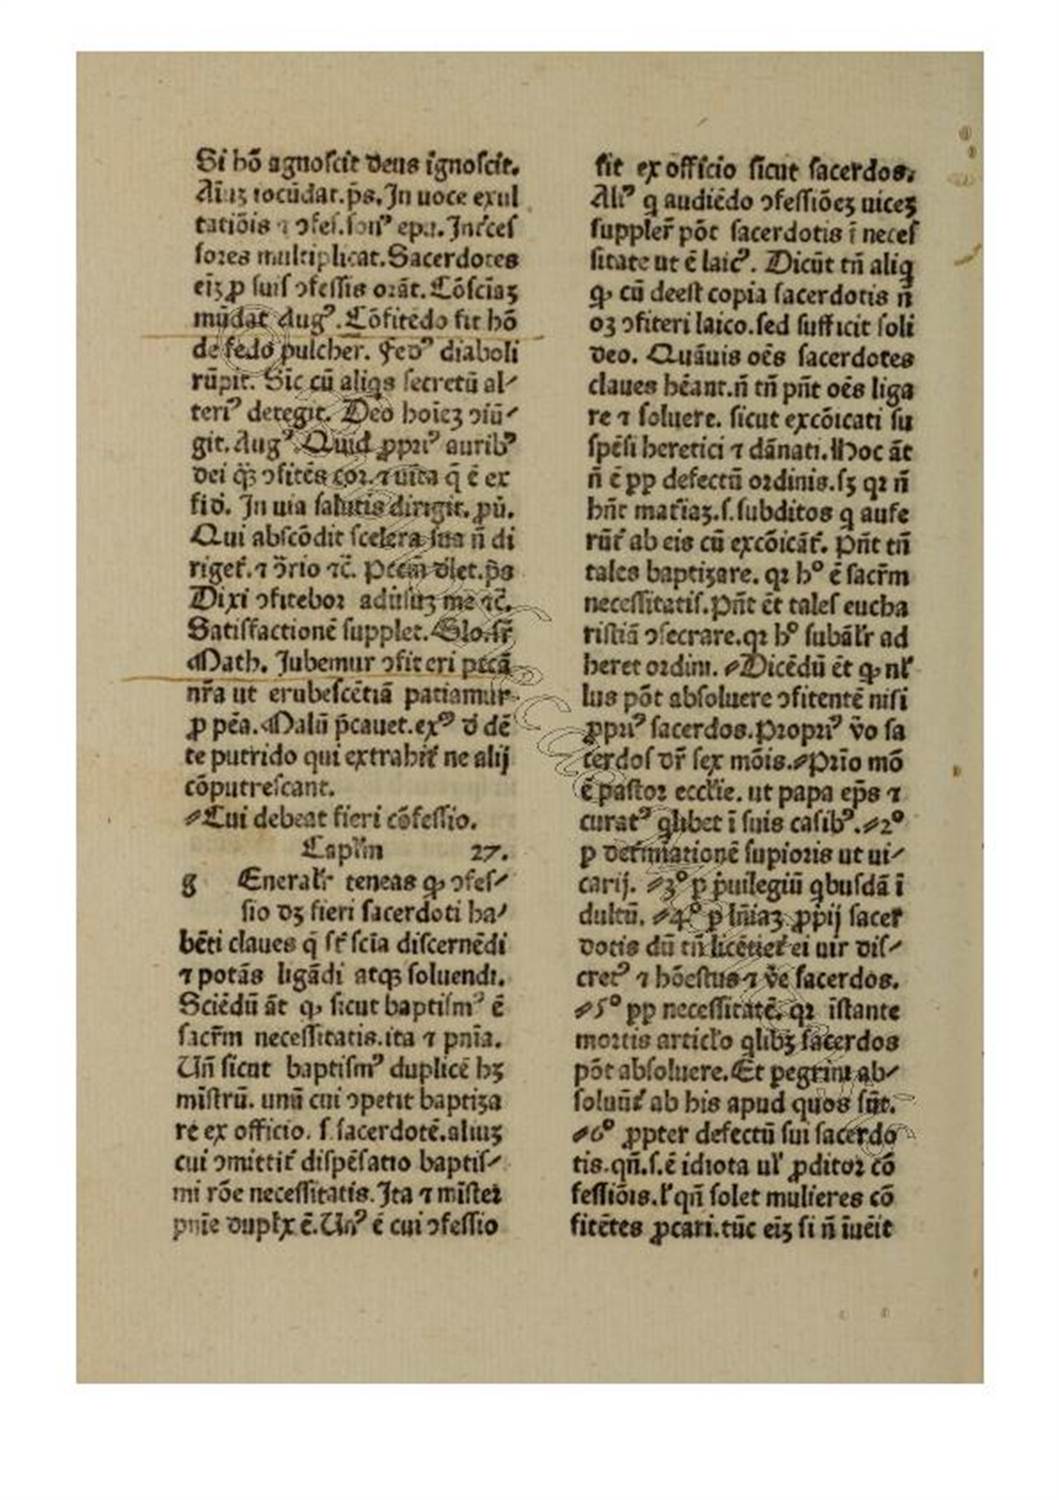 Si hō agnoſcit deus ignoſcit.
Aīaʒ iocūdat.p̄s. In uoce exul
tatiōis ⁊ ↄfeſ.ſonꝰ epu. Intceſ
ſores multiplicat. Sacerdotes
eiʒ ꝓ ſuiſ ↄfeſſis orāt. Cōſciāʒ
mūdat Augꝰ. Cōfitēdo fit hō
de fedo pulcher. Fedꝰ diaboli
rūpit. Sic cū aliqs ſecretū al⸗
teriꝰ detegit. Deo hoīeʒ ↄiū⸗
git. Augꝰ. Quid ꝓpriꝰ auribꝰ
dei q̄ꝫ ↄfitēs cor.⁊ uita q̄ ē ex
fid. In uia ſalutis dirigit. ꝓū.
Qui abſcōdit ſcelera ſua n̄ di
riget.⁊ ↄ̄rio ⁊c̄. Pctm̄ dlet.p̄s
Dixi ↄfitebor aduſuʒ me ⁊c̄.
Satiſfactionē ſupplet. Glo. ſr̄
Math. Jubemur ↄfiteri pctā
nr̄a ut erubeſcētiā patiamur
ꝓ pēa. Malū p̄cauet. exꝰ d dē
te putrido qui extrahit̄ ne alij
cōputreſcant.
⸗Cui debeat fieri cōfeſſio.
Capl̄m 27.
g Eneral̄r teneas ꝙ ↄfeſ⸗
ſio dꝫ fieri ſacerdoti ha⸗
bēti claues q̄ ſt̄ ſcīa diſcernēdi
⁊ potās ligādi atqꝫ ſoluendi.
Sciēdū āt ꝙ ſicut baptiſmꝰ ē
ſacr̄m neceſſitatis.ita ⁊ pnīa.
Un̄ ſicut baptiſmꝰ duplicē hꝫ
miſtrū. unū cui ↄpetit baptiza
re ex officio. ſ. ſacerdotē.aliuʒ
cui ↄmittit̄ diſpēſatio baptiſ⸗
mi rōe neceſſitatis. Ita ⁊ miſter
pnīe dupl̄x ē. Unꝰ ē cui ↄfeſſio
fit ex officio ſicut ſacerdos.
Aliꝰ q audiēdo ↄfeſſiōeʒ uiceʒ
ſuppler̄ pōt ſacerdotis ī neceſ
ſitate ut ē laicꝰ. Dicūt tn̄ aliq̄
ꝙ cū deeſt copia ſacerdotis n̄
oʒ ↄfiteri laico.ſed ſufficit ſoli
deo. Quāuis oēs ſacerdotes
claues hēant.n̄ tn̄ pn̄t oēs liga
re ⁊ ſoluere. ſicut excōicati ſu
ſpēſi heretici ⁊ dānati. Hoc āt
n̄ ē ꝑp defectū ordinis.ſʒ qꝛ n̄
hn̄t mat̄iaʒ.ſ.ſubditos q aufe
rūt̄ ab eis cū excōicāt̄. Pn̄t tn̄
tales baptizare. qꝛ hº ē ſacr̄m
neceſſitatiſ. Pn̄t ēt taleſ eucha
riſtiā ↄſecrare.qꝛ hº ſubāl̄r ad
heret ordini. ⸗Dicēdū ēt ꝙ nl̄
lus pōt abſoluere ↄfitentē niſi
ꝓpriꝰ ſacerdos. Propriꝰ v̄o ſa
cerdoſ dr̄ ſex mōis.⸗Prīo mō
ē paſtor eccl̄ie. ut papa ep̄s ⁊
curatꝰ qlibet ī ſuis caſibꝰ.⸗2º
ꝑ det̄miationē ſupioris ut ui⸗
carij. ⸗3º ꝑ p̄uilegiū qbuſdā ī
dultū. ⸗4º ꝑ l̄niaʒ ꝓpij ſacer̄
dotis dū tn̄ licētiet̄ ei uir diſ⸗
cretꝰ ⁊ hōeſtus ⁊ v̄e ſacerdos.
⸗5º ꝑp neceſſitatē. qꝛ īſtante
mortis articl̄o qlibʒ ſacerdos
pōt abſoluere. Et ꝑegrini ab⸗
ſoluūt̄ ab his apud quos ſūt.
⸗6º ꝓpter defectū ſui ſacerdo
tis.qn̄.ſ.ē idiota ul̄ ꝓditor cō
feſſiōis.l̄ qn̄ ſolet mulieres cō
fitētes ꝓcari.tūc eiʒ ſi n̄ īuēit